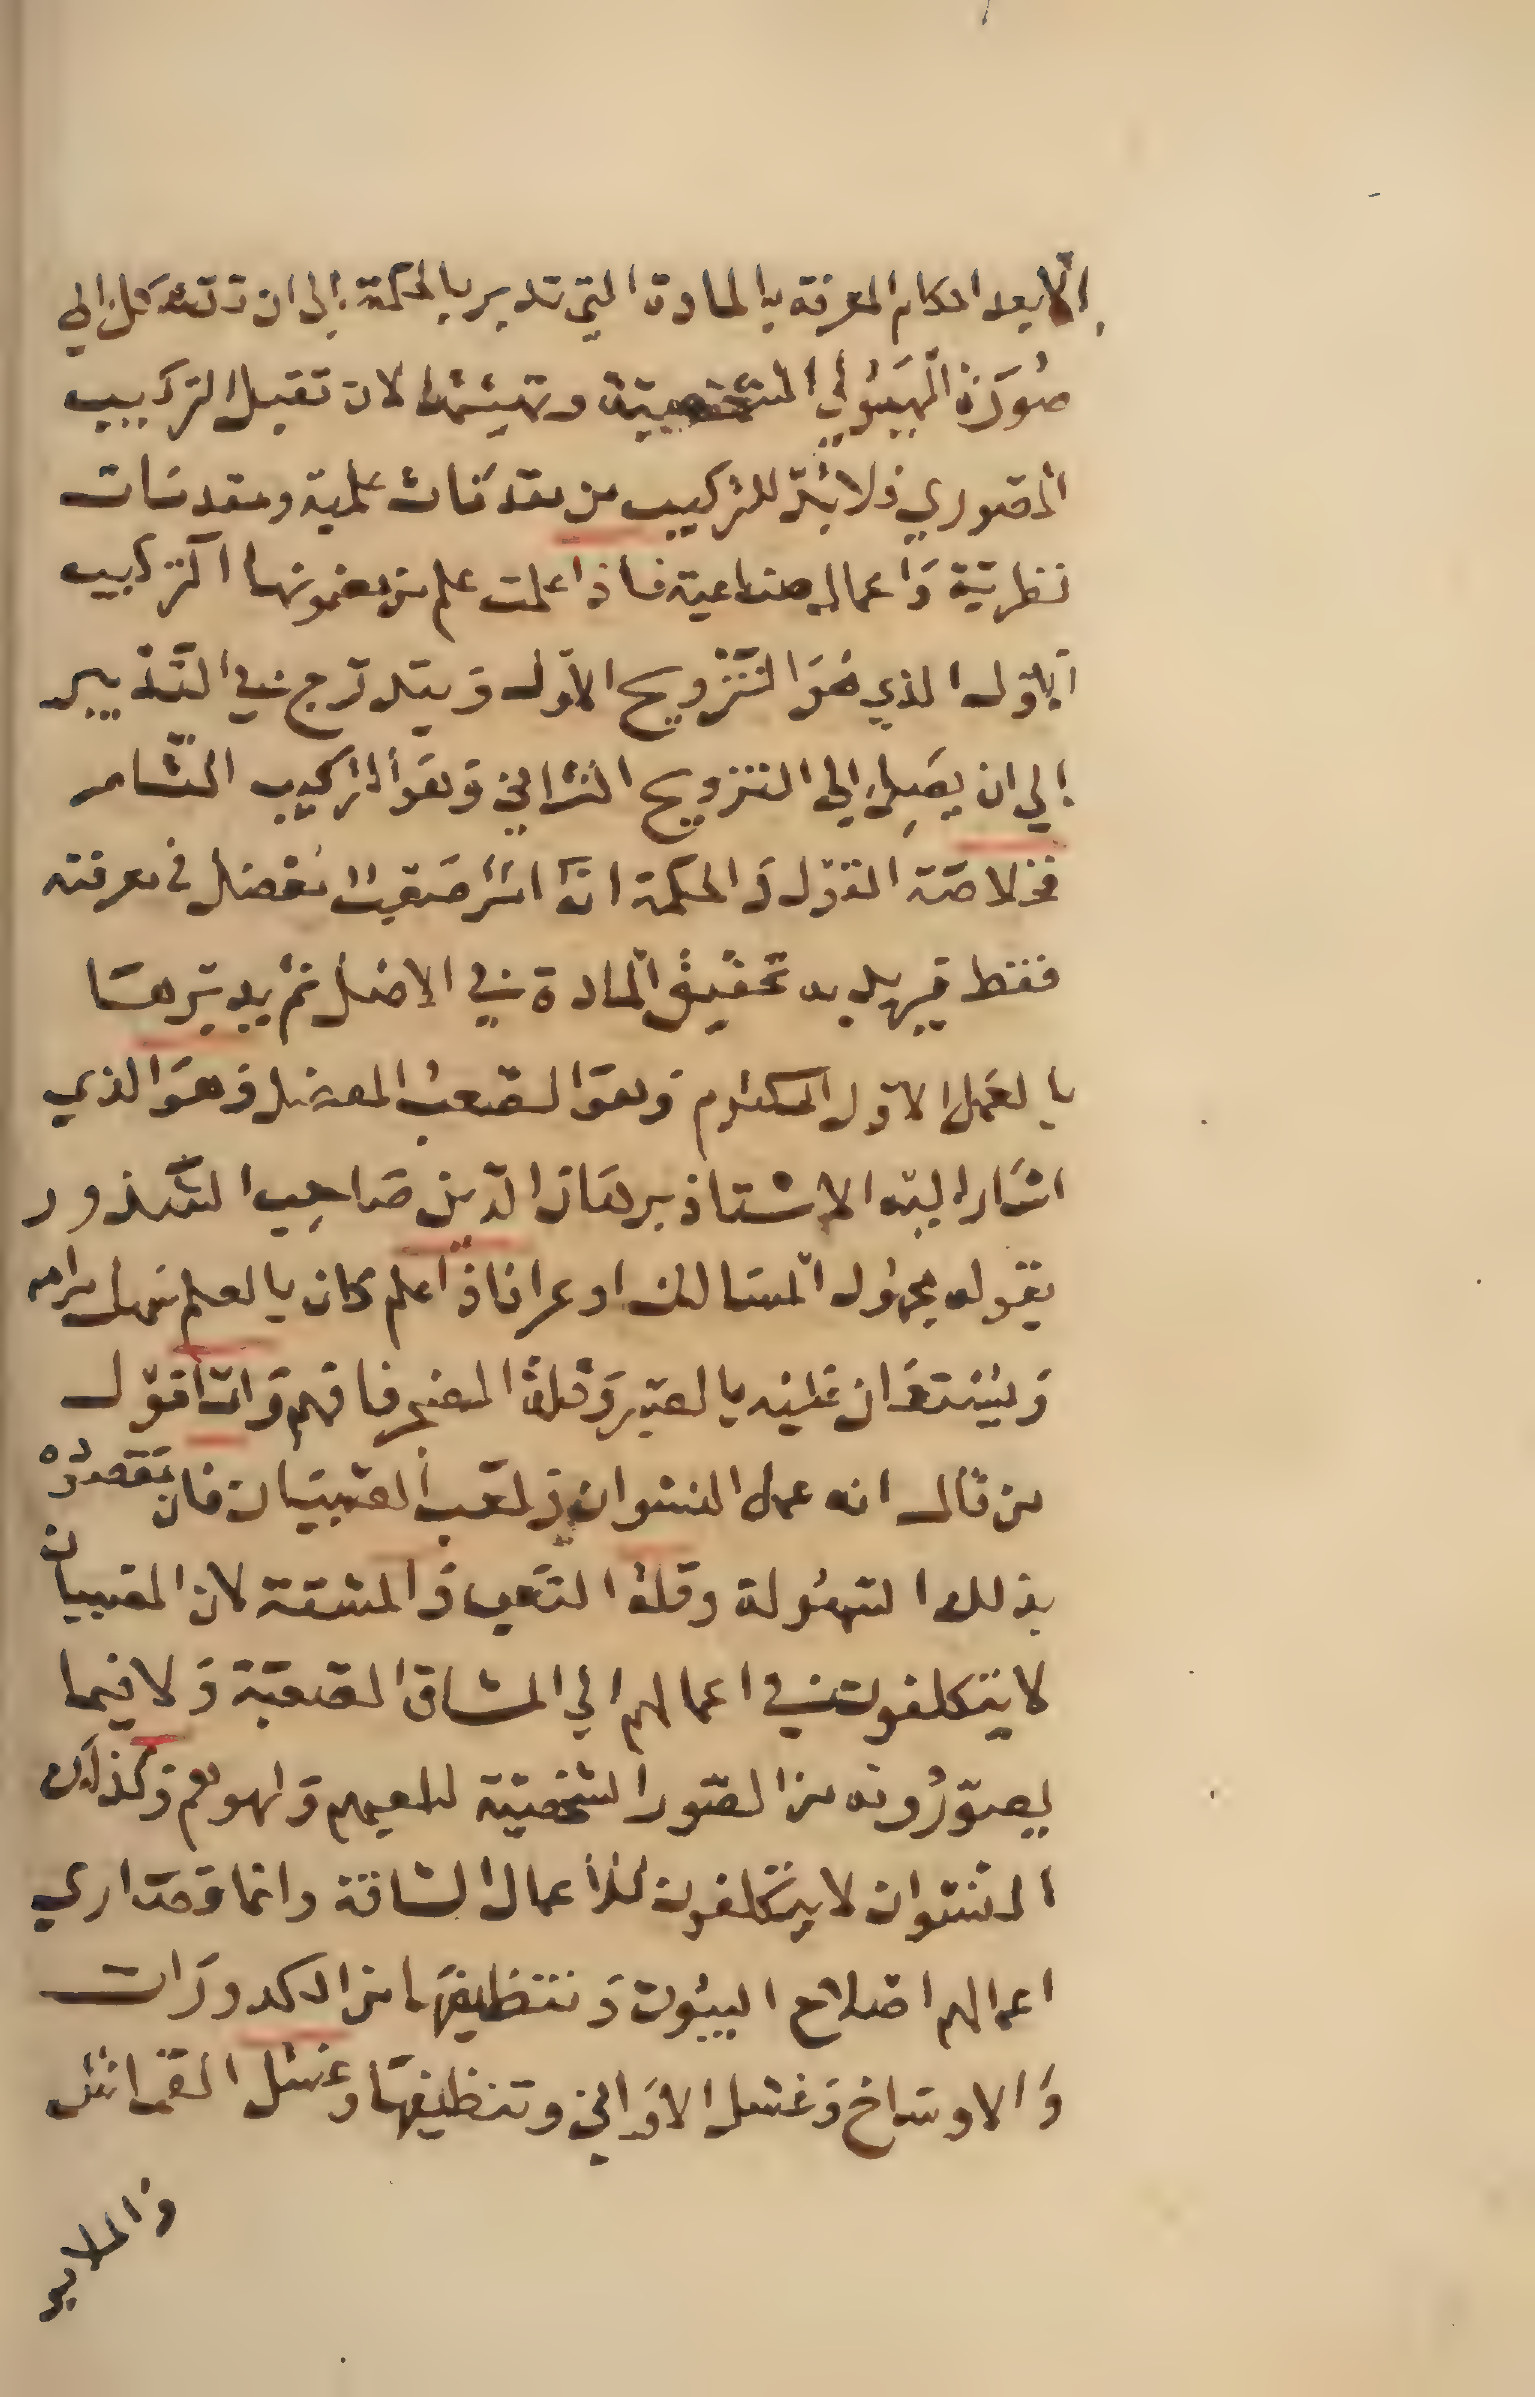 إلّا بعد احكام المعرفة بالمادة التي تدبر بالحكمة إلى ان تتشكل إلى
صُورَة الهَيُولي الشخصية وتهيئتها لان تقبل التركيب
الصّوري فلا بُدّ للتركيب من مقدمَات علمية ومقدمات
نظريّة وَاعمال صناعية فاذا علمت علم من مضمونها التركيب
الاوّل الذي هُوَ التّزويج الاوّل وَيتدرّج في التّدبير
إلي ان يصِل إلى التزويج الثّاني وَهوَ التركيب التّام
فخلاصَة القوْل وَالحكمة انّ
فقط فيريد به تحقيق المادة في الاصْل ثمّ يدبّرها
بالعَمل الاوّل المكتوم وَهوَ الصّعبُ المعضل وَهوَ الذي
اشَار اليْه الاسْتاذ برهَان الدّين صَاحِب الشّذور
بقوله مجهُول المسَالك اوعرا فاذا علم كان بالعلم سَهل مرامه
وَيُسْتعَان عَليْه بالصّبر وَقلة الضجر فافهم وَامّا قوْل
من قال انه عمل النسْوان وَلعَب الصّبيَان فان مَقصدُهُ
بذلك السّهُولة وقلة التّعَب وَالمشقة لان الصّبيان
لا يتكلفون في اعمالهم الي المشاق الصّعبَة وَلا فيما
يصوّرُونه من الصّور الشّخصيّة للعبهم وَلهوهم وَكذلك
النّسْوان لا يتكلفون للأعمال الشاقة وانما قصَاري
اعمالهم اصْلاح البيُوت وَتنظيفهَا من الكدورَات
وَالاوسَاخ وَغسْل الاوَاني وتنظيفهَا وغسْل القمَاش
وَالملابـ